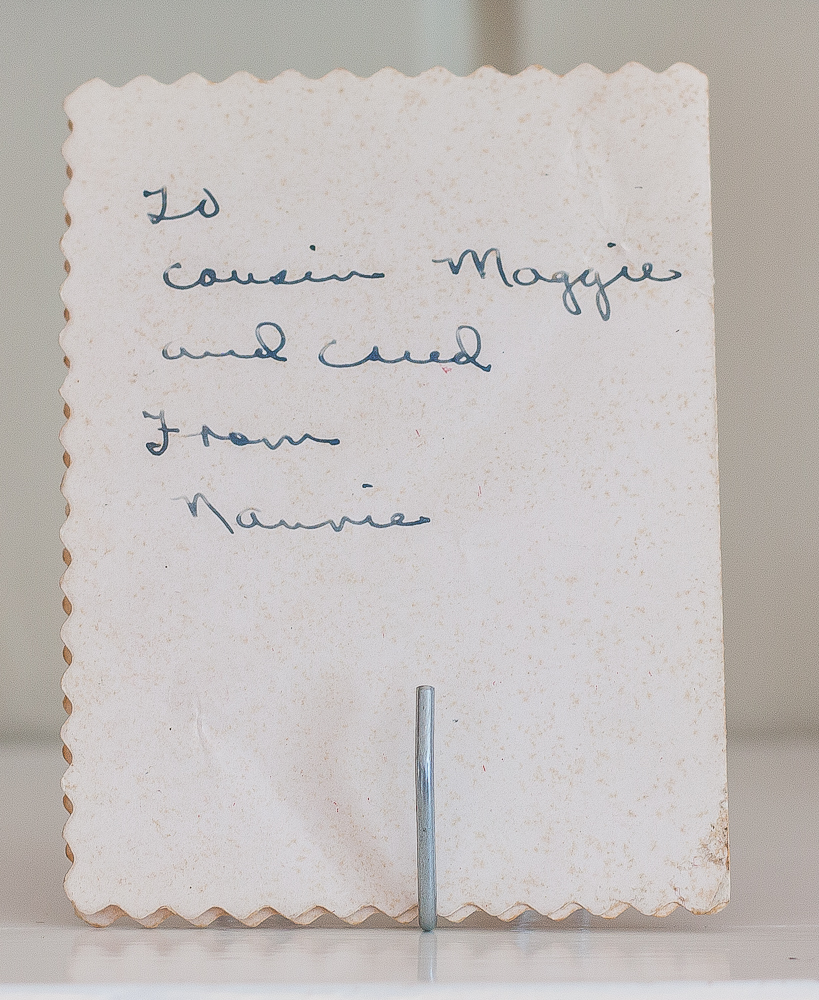 To
cousin Maggie
and
From
Nannie